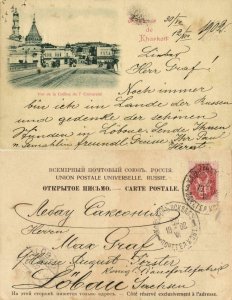 de
Kharkoff
30/IV
1902
Lieber
Herr Graf!
Vue de la Colline de l'Université
Noch immer
bin ich im Lande der Russen
und gedenke der schönen
Stunden in Löbau. Sende Ihnen
freundlichen Gruss
ВСЕМІРНЫЙ ПОЧТОВЫЙ СОЮЗ. РОССІЯ.
UNION POSTALE UNIVERSELLE. RUSSIE.
ОТКРЫТОЕ ПИСЬМО. — CARTE POSTALE.
Лёбау Саксонія
Herrn
Max Graf
August Förster
Königl. Pianofortefabrik
Löbau
Sachsen
На этой сторонѣ пишется только адресъ. — Côté réservé exclusivement à l'adresse.